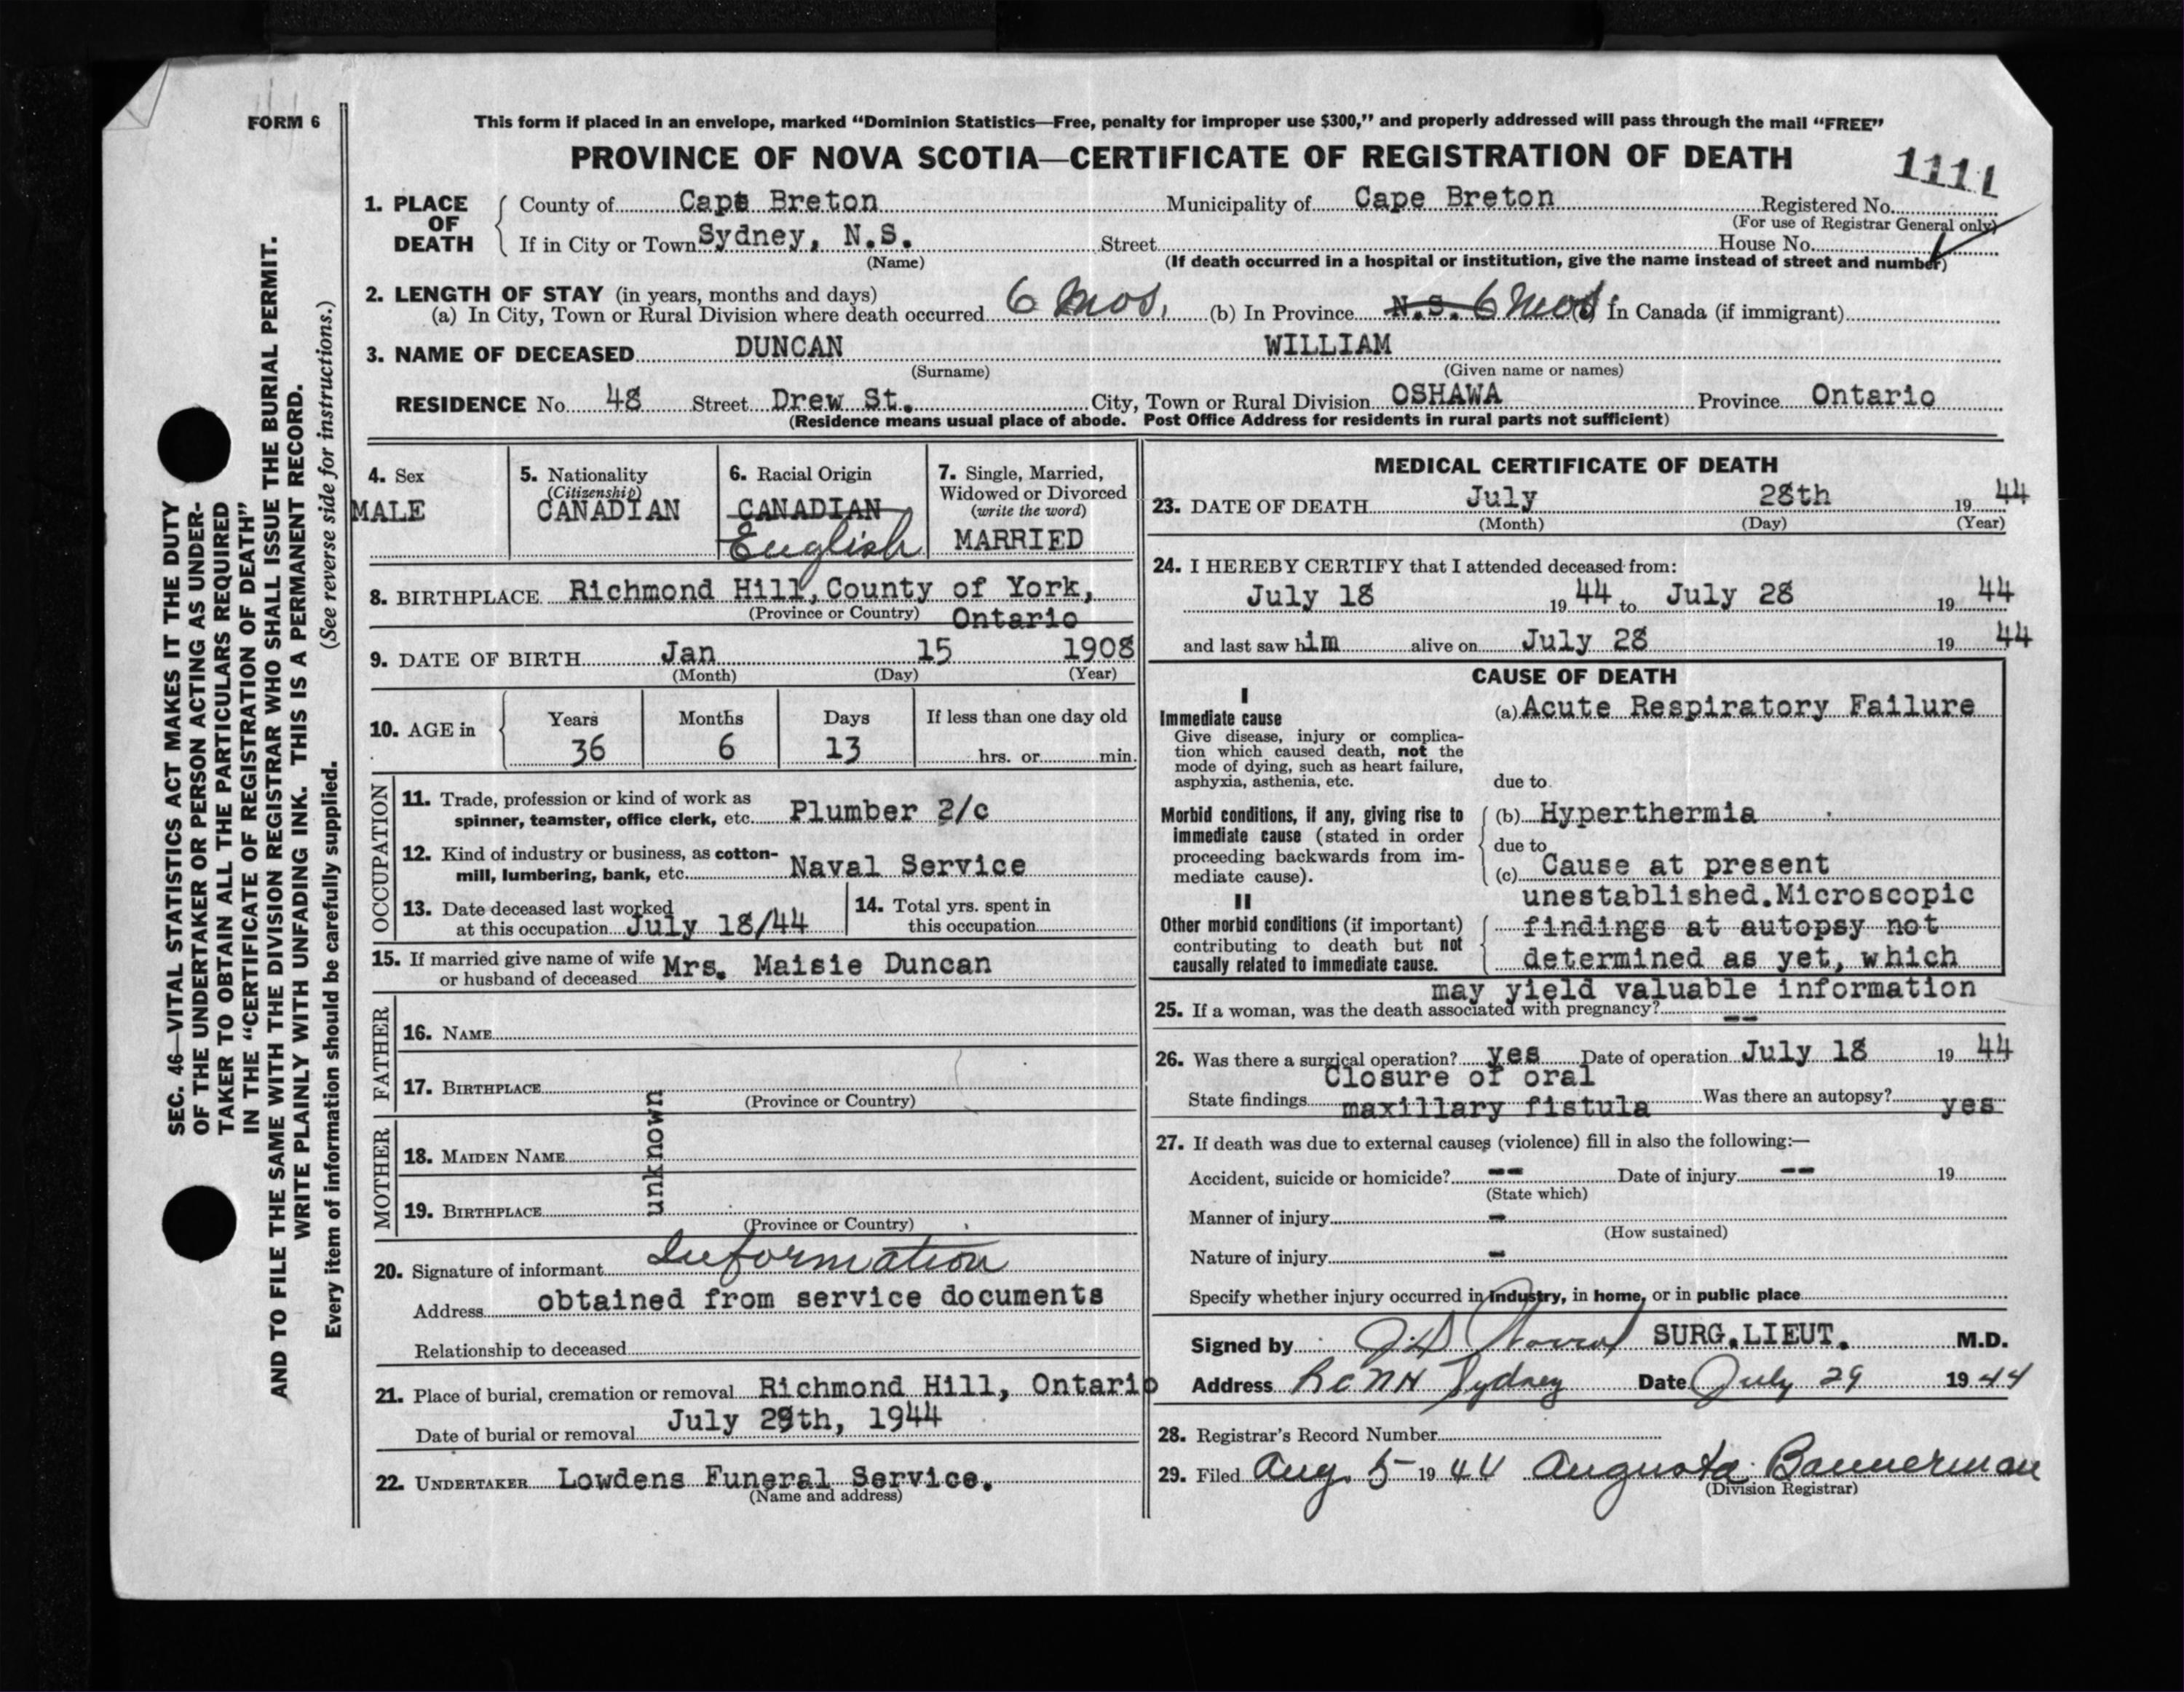 FORM 6
This form if placed in an envelope, marked “Dominion Statistics—Free, penalty for improper use $300,” and properly addressed will pass through the mail “FREE”
PROVINCE OF NOVA SCOTIA—CERTIFICATE OF REGISTRATION OF DEATH
1111
1. PLACE OF DEATH
County of Cape Breton Municipality of Cape Breton Registered No.
(For use of Registrar General only)
If in City or Town Sydney, N.S. Street House No.
(Name) (If death occurred in a hospital or institution, give the name instead of street and number)
2. LENGTH OF STAY (in years, months and days)
(a) In City, Town or Rural Division where death occurred 6 mos. (b) In Province N.S. 6 mos (c) In Canada (if immigrant)
3. NAME OF DECEASED DUNCAN WILLIAM
(Surname) (Given name or names)
RESIDENCE No. 48 Street Drew St. City, Town or Rural Division OSHAWA Province Ontario
(Residence means usual place of abode. Post Office Address for residents in rural parts not sufficient)
4. Sex
MALE
5. Nationality
(Citizenship)
CANADIAN
6. Racial Origin
CANADIAN
English
7. Single, Married,
Widowed or Divorced
(write the word)
MARRIED
8. BIRTHPLACE Richmond Hill, County of York,
(Province or Country) Ontario
9. DATE OF BIRTH Jan 15 1908
(Month) (Day) (Year)
10. AGE in
Years Months Days If less than one day old
36 6 13 hrs. or min.
OCCUPATION
11. Trade, profession or kind of work as
spinner, teamster, office clerk, etc. Plumber 2/c
12. Kind of industry or business, as cotton-
mill, lumbering, bank, etc. Naval Service
13. Date deceased last worked
at this occupation July 18/44
14. Total yrs. spent in
this occupation
15. If married give name of wife
or husband of deceased Mrs. Maisie Duncan
FATHER
16. NAME
17. BIRTHPLACE
(Province or Country)
unknown
MOTHER
18. MAIDEN NAME
19. BIRTHPLACE
(Province or Country)
20. Signature of informant Information
Address obtained from service documents
Relationship to deceased
21. Place of burial, cremation or removal Richmond Hill, Ontario
Date of burial or removal July 29th, 1944
22. UNDERTAKER Lowdens Funeral Service.
(Name and address)
MEDICAL CERTIFICATE OF DEATH
23. DATE OF DEATH July 28th 19 44
(Month) (Day) (Year)
24. I HEREBY CERTIFY that I attended deceased from:
July 18 19 44 to July 28 19 44
and last saw him alive on July 28 19 44
CAUSE OF DEATH
I
Immediate cause
Give disease, injury or complica-
tion which caused death, not the
mode of dying, such as heart failure,
asphyxia, asthenia, etc.
(a) Acute Respiratory Failure
due to
Morbid conditions, if any, giving rise to
immediate cause (stated in order
proceeding backwards from im-
mediate cause).
(b) Hyperthermia
due to
(c) Cause at present
unestablished. Microscopic
II
Other morbid conditions (if important)
contributing to death but not
causally related to immediate cause.
findings at autopsy not
determined as yet, which
may yield valuable information
25. If a woman, was the death associated with pregnancy? --
26. Was there a surgical operation? yes Date of operation July 18 19 44
Closure of oral
State findings maxillary fistula Was there an autopsy? yes
27. If death was due to external causes (violence) fill in also the following:—
Accident, suicide or homicide? -- Date of injury -- 19
(State which)
Manner of injury -
(How sustained)
Nature of injury -
Specify whether injury occurred in industry, in home, or in public place
Signed by SURG.LIEUT. M.D.
Address RCNH Sydney Date July 29 19 44
28. Registrar's Record Number
29. Filed Aug. 5 19 44 Augusta Bannerman
(Division Registrar)
SEC. 46—VITAL STATISTICS ACT MAKES IT THE DUTY
OF THE UNDERTAKER OR PERSON ACTING AS UNDER-
TAKER TO OBTAIN ALL THE PARTICULARS REQUIRED
IN THE “CERTIFICATE OF REGISTRATION OF DEATH”
AND TO FILE THE SAME WITH THE DIVISION REGISTRAR WHO SHALL ISSUE THE BURIAL PERMIT.
WRITE PLAINLY WITH UNFADING INK. THIS IS A PERMANENT RECORD.
Every item of information should be carefully supplied. (See reverse side for instructions.)